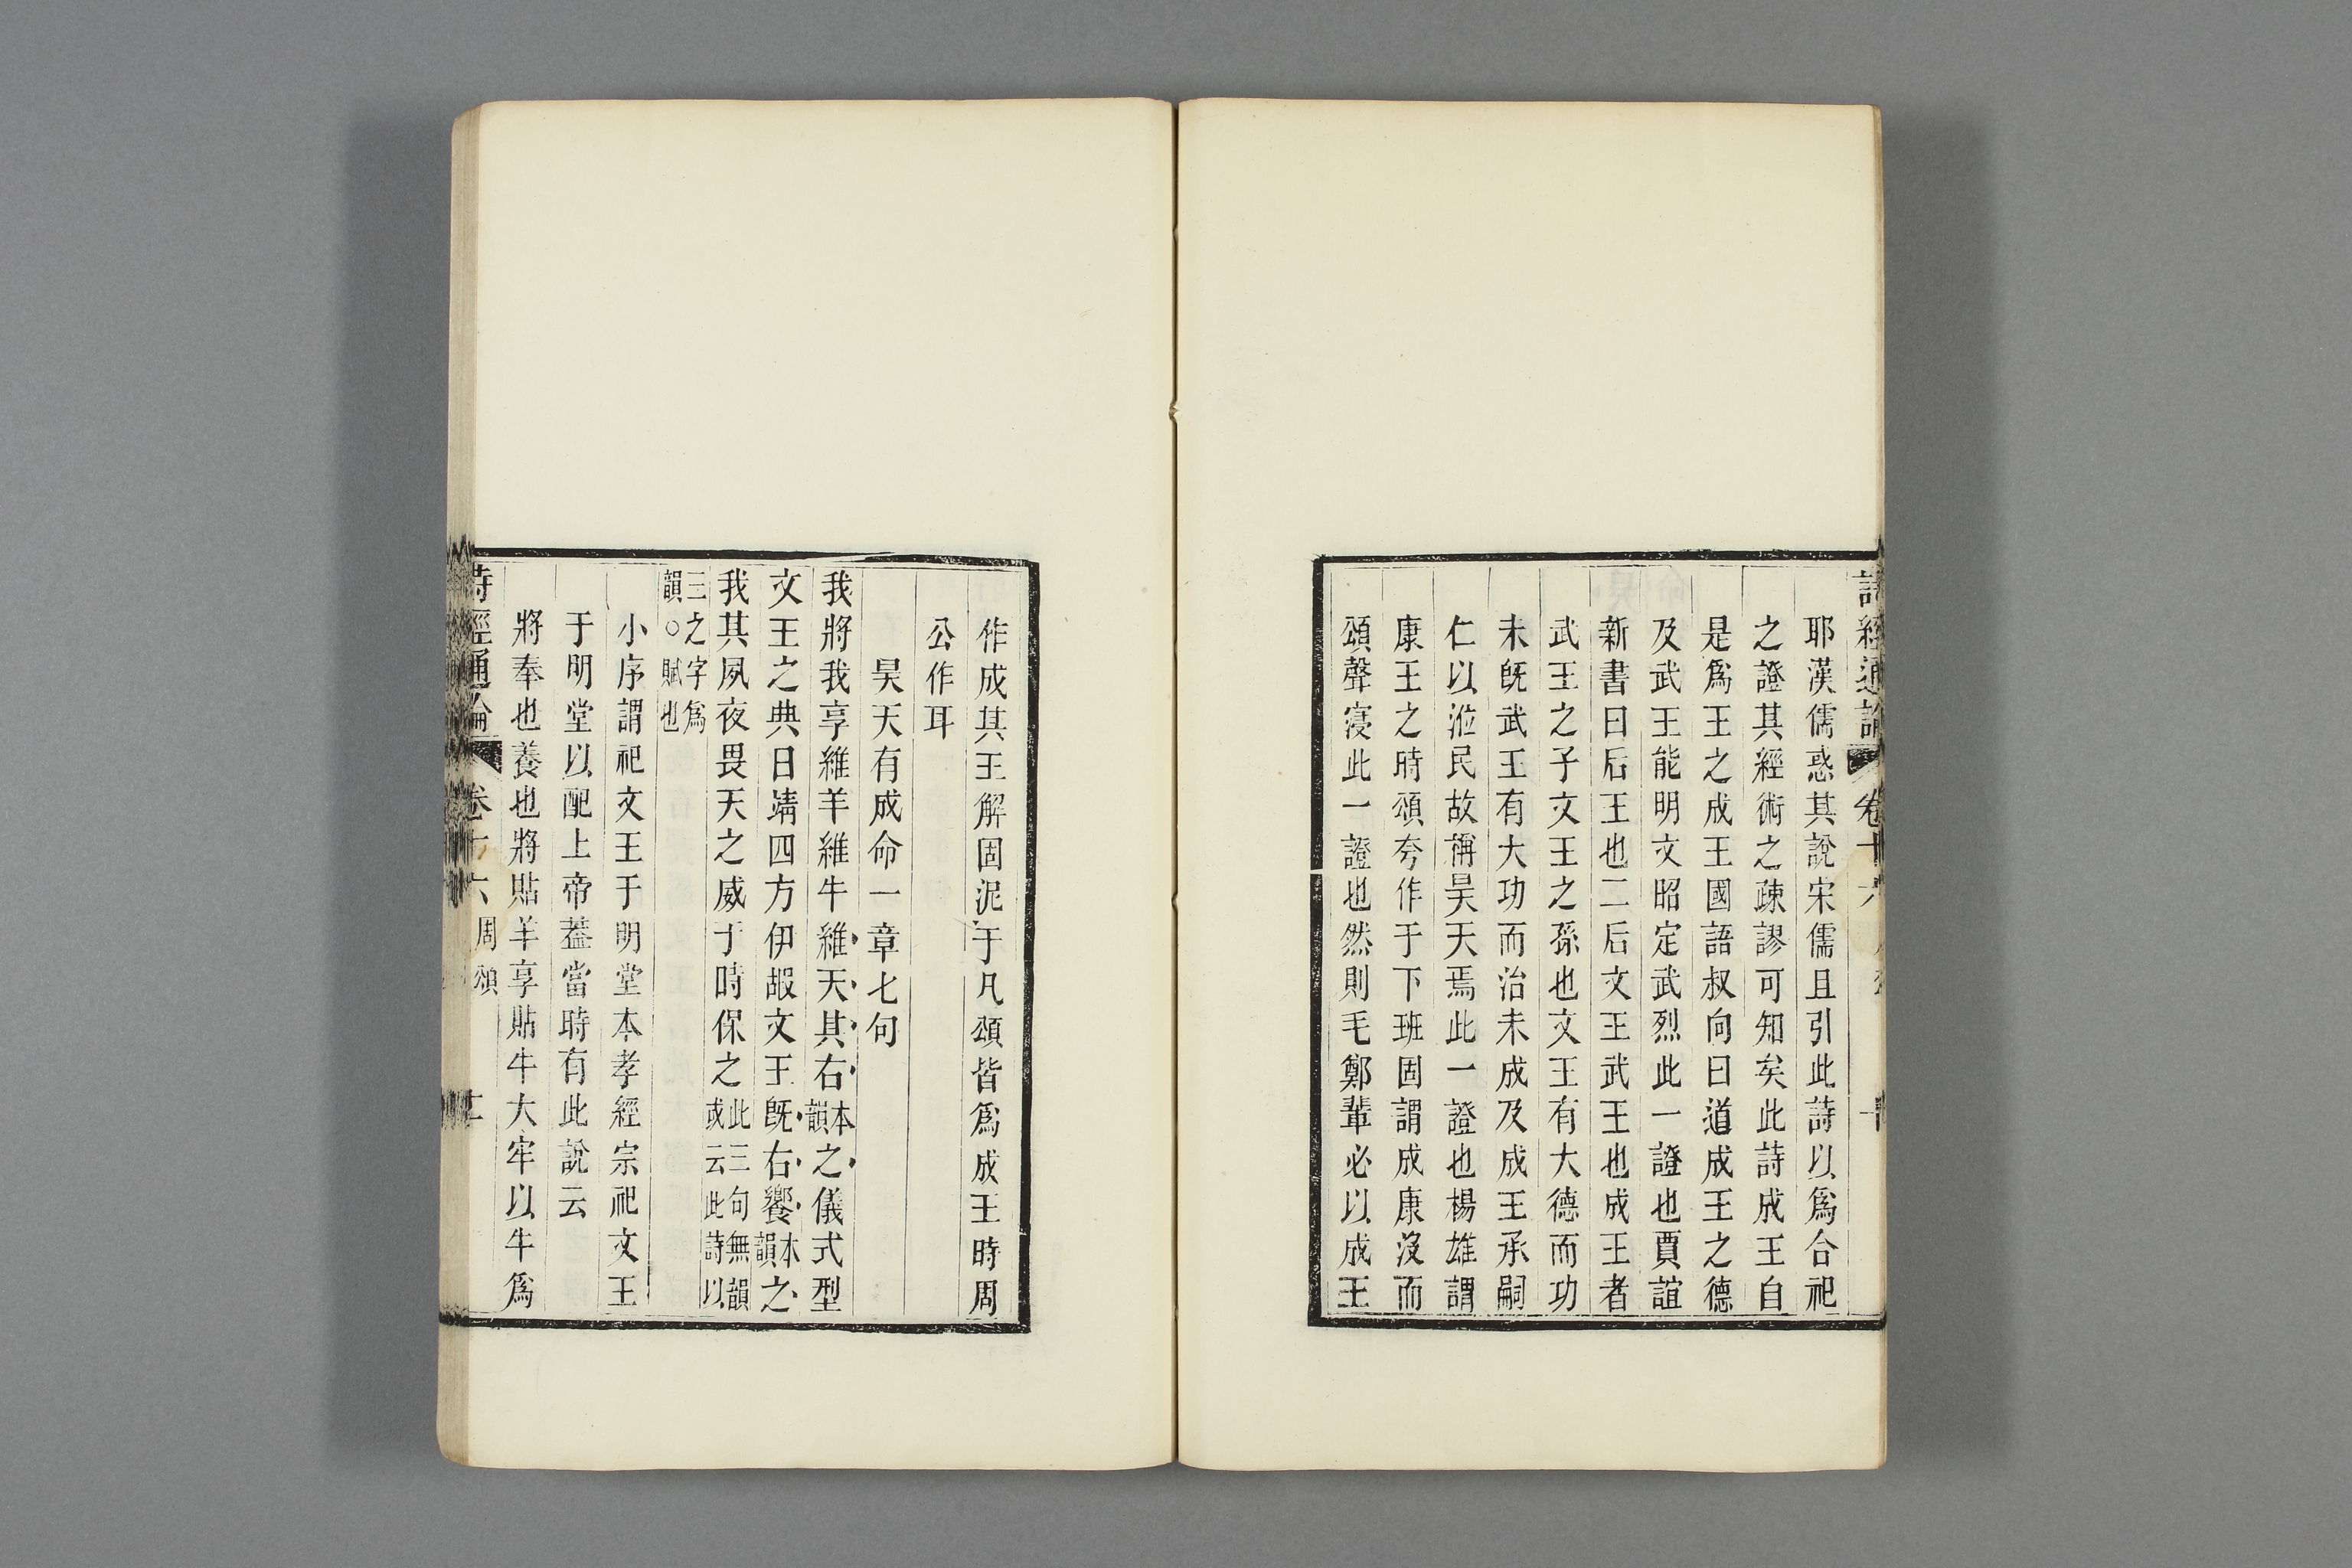 詩經通論 卷十六
耶漢儒惑其說宋儒且引此詩以爲合祀
之證其經術之疎謬可知矣此詩成王自
是爲王之成王國語叔向曰道成王之德
及武王能明文昭定武烈此一證也賈誼
新書曰后王也二后文王武王也成王者
武王之子文王之孫也文王有大德而功
未旣武王有大功而治未成及成王承嗣
仁以涖民故稱昊天焉此一證也楊雄謂
康王之時頌夸作于下班固謂成康沒而
頌聲寑此一證也然則毛鄭輩必以成王
作成其王解固泥于凡頌皆爲成王時周
公作耳
昊天有成命一章七句
我將我享維羊維牛維天其右本韻之儀式型
文王之典日靖四方伊嘏文王旣右饗本韻之
我其夙夜畏天之威于時保之此三句無韻或云此詩以
三之字爲韻○賦也
小序謂祀文王于明堂本孝經宗祀文王
于明堂以配上帝葢當時有此說云
將奉也養也將貼羊享貼牛大牢以牛爲
詩經通論 卷十六 周頌